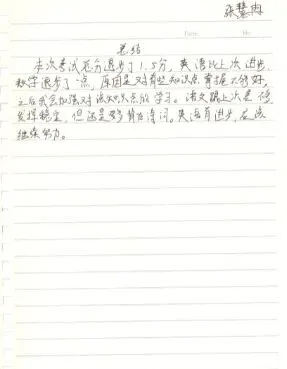 张慧内
Date. No.
总结
本次考试总分退步了1.5分,英语比上次进步,
数学退步了一点,原因是对有些知识点掌握不够好,
之后我会加强对该知识点的学习。语文跟上次差不多
发挥稳定,但还是要背古诗词。英语有进步,应该
继续努力。